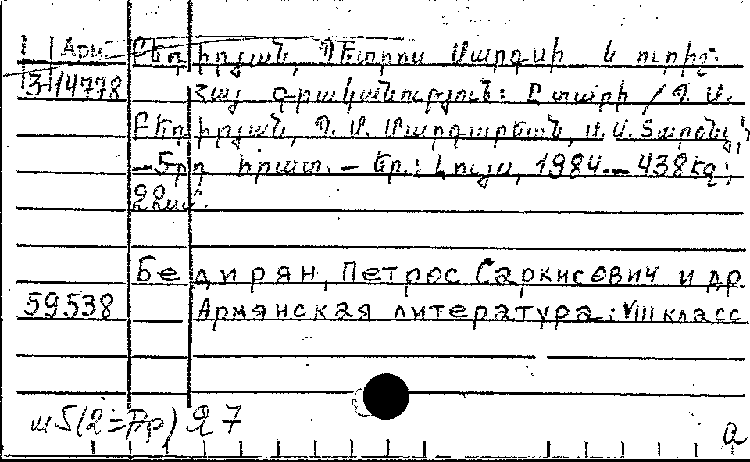 1 Арм Բեդիրյան, Պետրոս Սարգսի և ուրիշ.
3 14778 Հայ գրականություն: Ընտիր / Պ. Ս.
Բեդիրյան, Պ. Մ.
— 5րդ հրատ. — Եր.: Լույս, 1984. — 438 էջ;
22սմ.
Бедирян, Петрос Саркисович и др
59538 Армянская литература: VIII класс
ա5(2=Др) Զ7
a